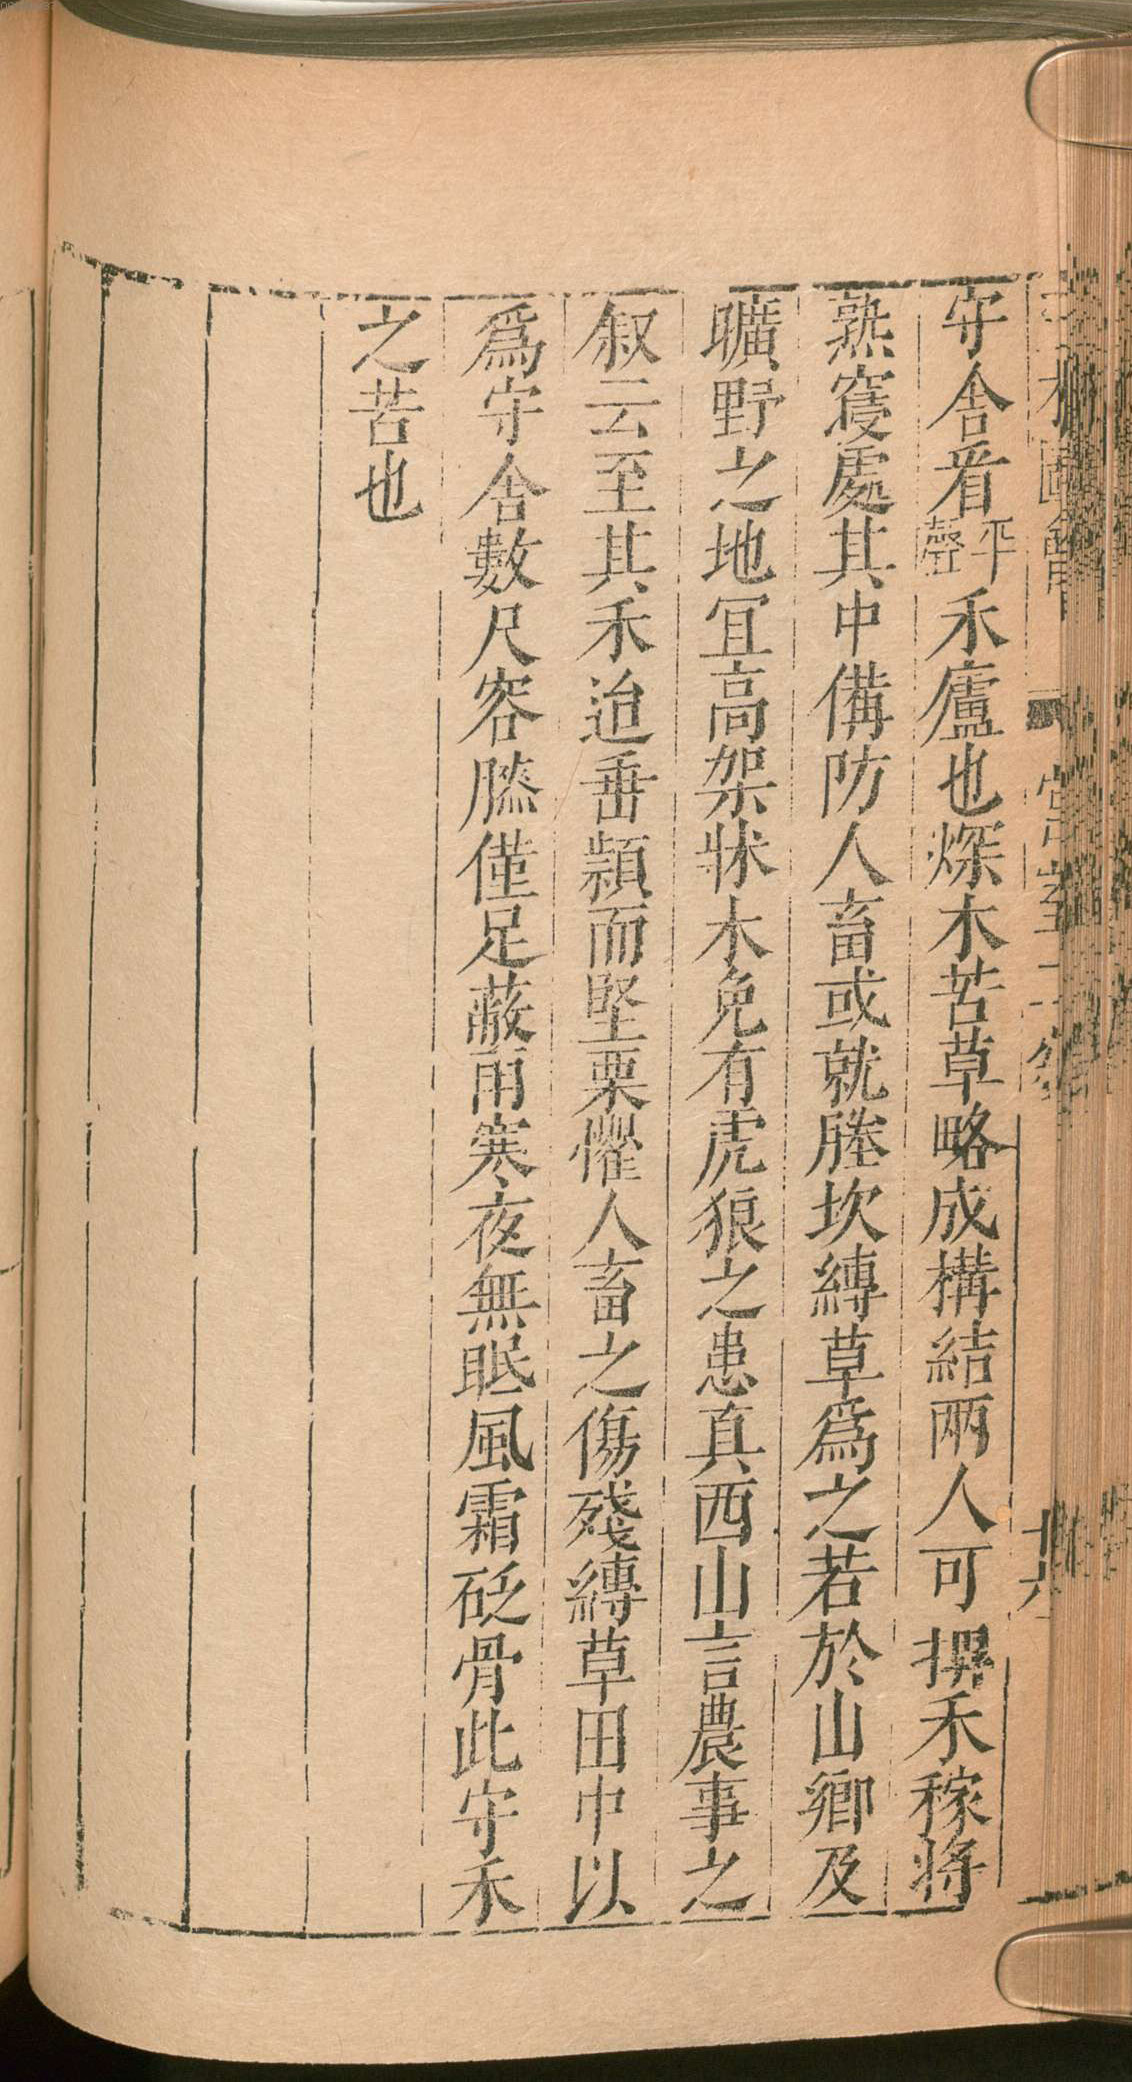 守舍看平聲禾廬也煣木苫草略成構結兩人可撰禾稼將
熟寢處其中備防人畜或就塍坎縛草爲之若於山鄉及
曠野之地宜高架牀木免有虎狼之患真西山言農事之
叙云至其禾迨垂穎而堅栗懼人畜之傷殘縛草田中以
爲守舍數尺容膝僅足蔽雨寒夜無眠風霜砭骨此守禾
之苦也